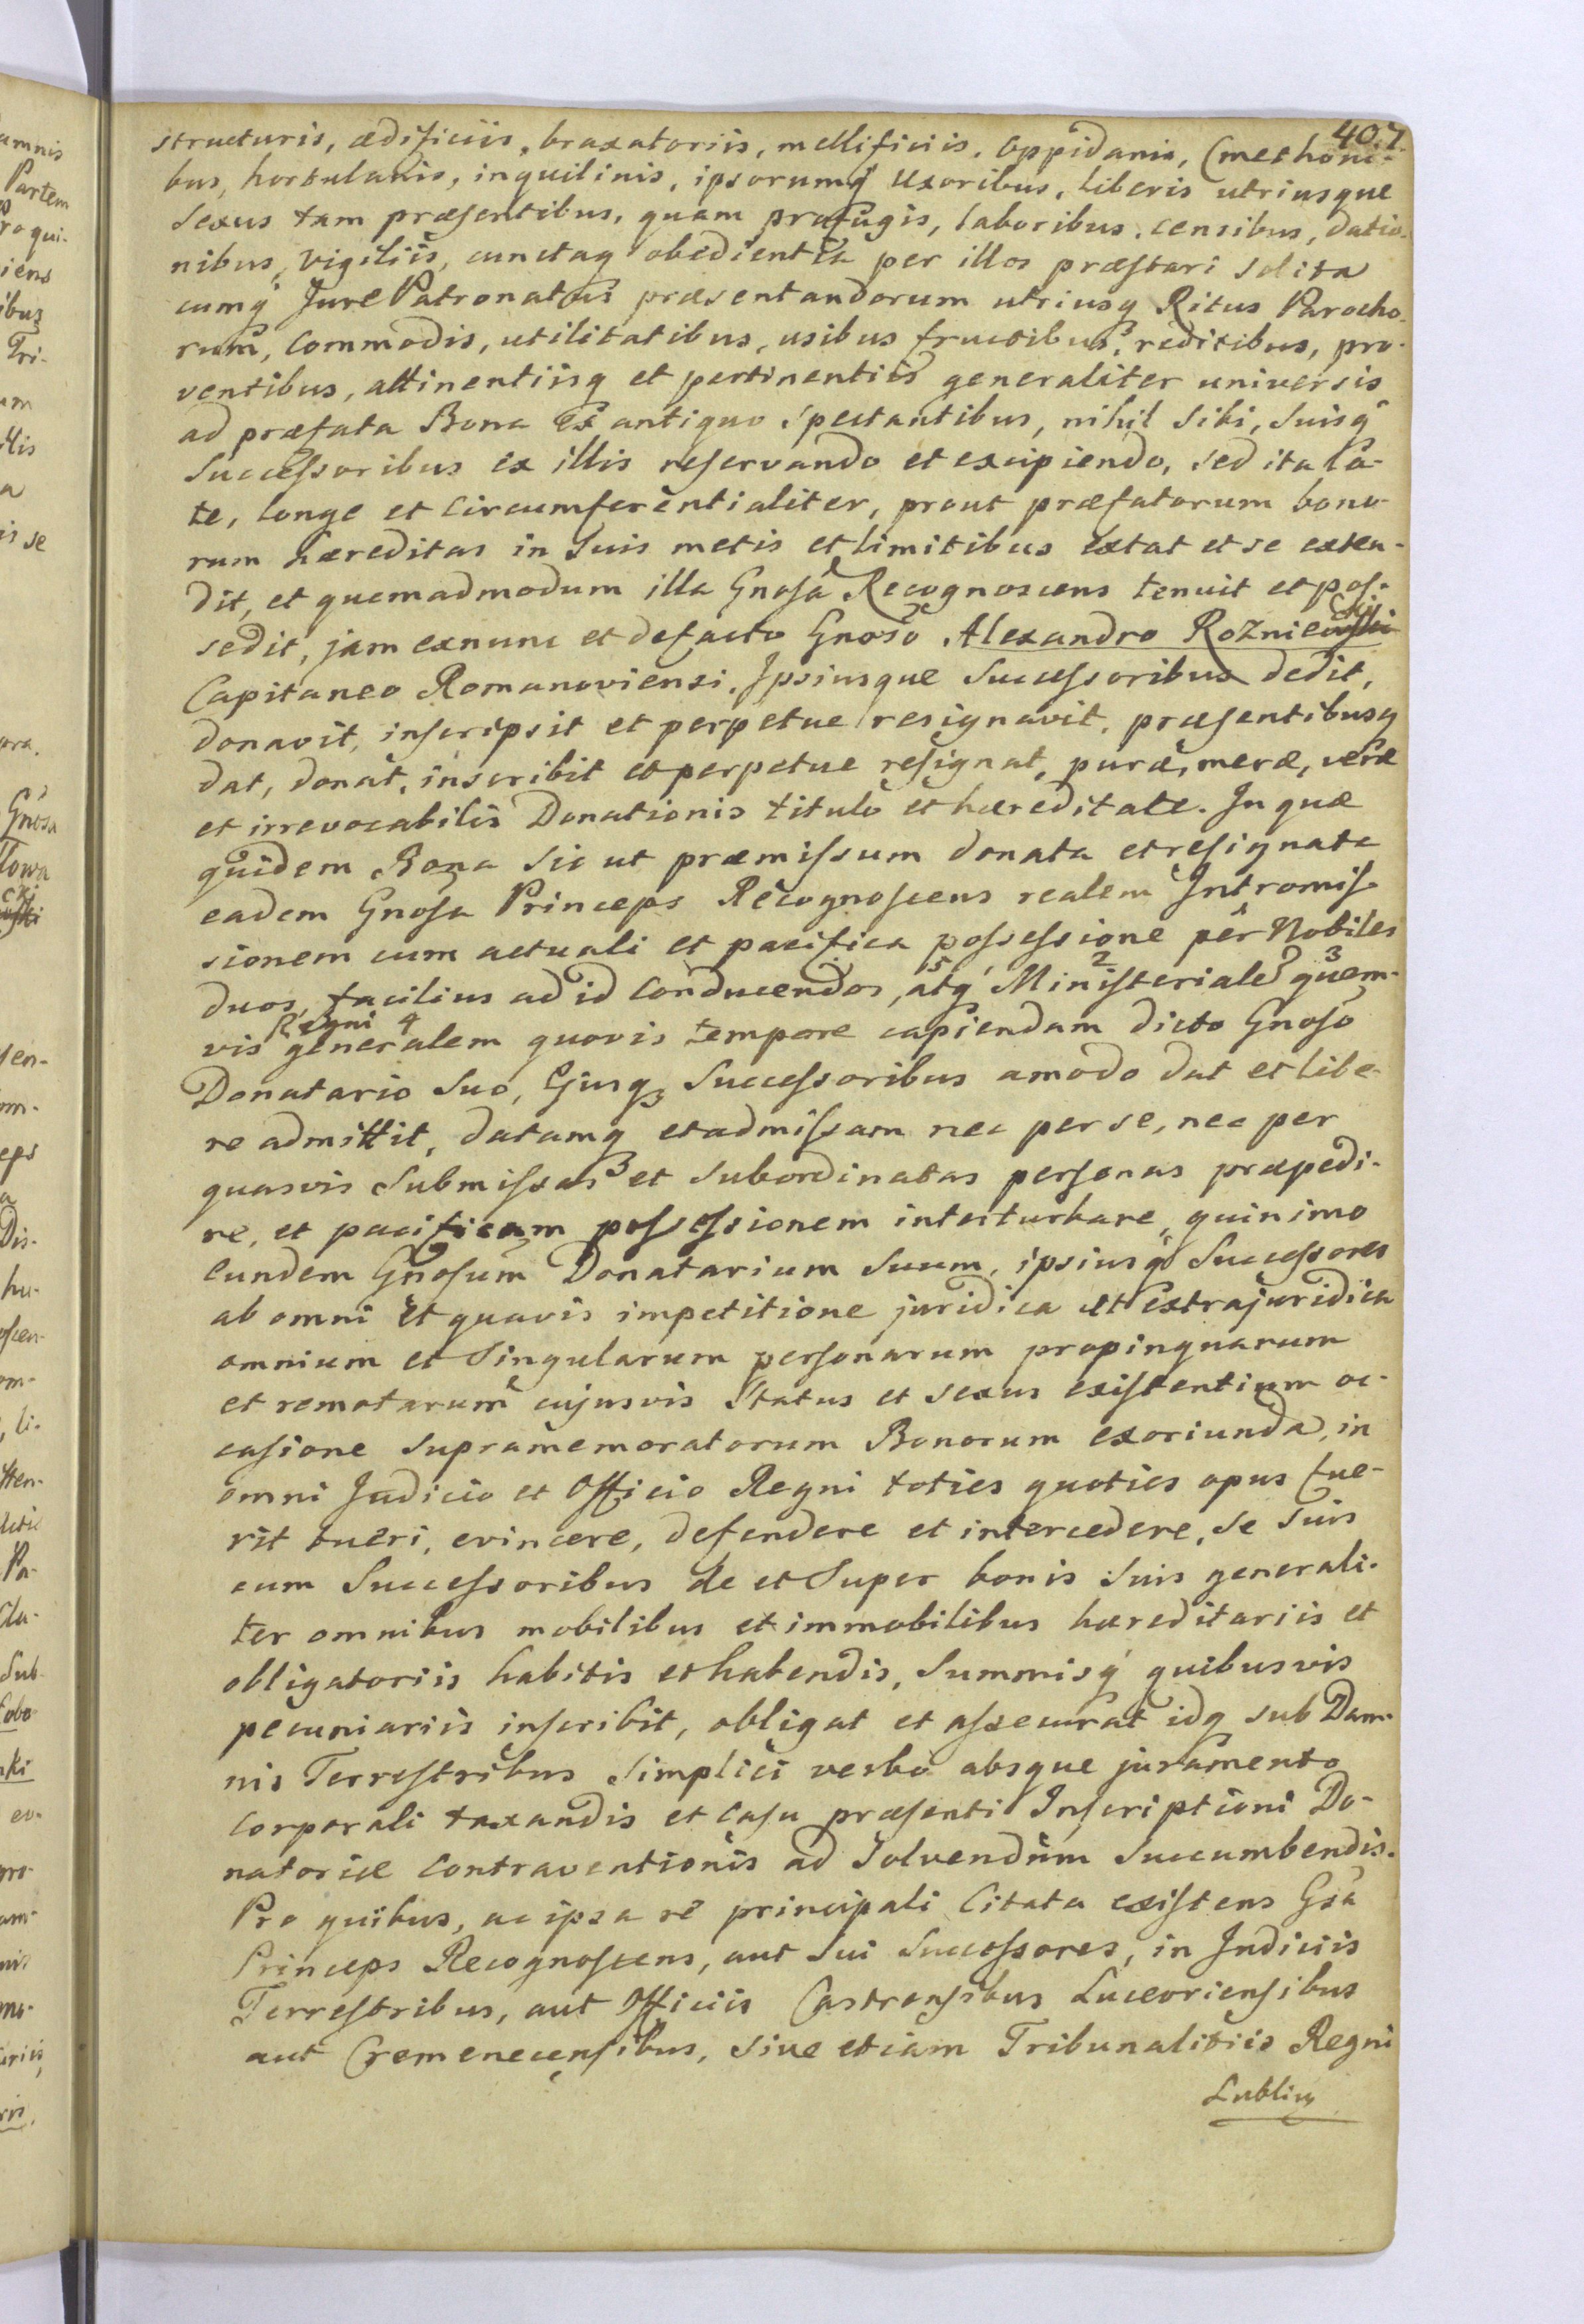 407
structuris, ædificiis, braxatoriis, mellificiis, Oppidanis, Cmethoni-
bus, hortulanis, inquilinis, ipsorumq́ Uxoribus, liberis utriusque
Sexus tam præsentibus, quam profugis, laboribus, censibus, datio-
nibus, vigiliis, cunctaq obedientia per illos præstari solita
cumq́ Jure Patronatus præsentandorum utriusq Ritus Parocho-
rum, commodis, utilitatibus, usibus fructibus, reditibus, pro-
ventibus, attinentiisq et pertinentiis generaliter universis
ad præfata Bona ex antiquo spectantibus, nihil sibi, suisq́
Successoribus ex illis reservando et excipiendo, sed ita la-
te, longe et circumferentialiter, prout præfatorum bono-
rum hæreditas in suis metis et limitibus extat et se exten-
dit, et quemadmodum illa Gnosa Recognoscens tenuit et pos-
sedit, jam exnunc et defacto Gnoso Alexandro Rożniecki
Capitaneo Romanoviensi, Ipsiusque Successoribus dedit,
donavit, inscripsit et perpetue resignavit, præsentibusq
dat, donat, inscribit et perpetue resignat, puræ, meræ, veræ
et irrevocabilis Donationis titulo et hæreditate. In quæ
quidem Bona sic ut præmissum donata et resignata
eadem Gnosa Princeps Recognoscens realem Intromis-
sionem cum actuali et pacifica possessione per Nobiles
duos, facilius ad id conducendos, 5 atq 2 Ministerialem 3 quem-
vis Regni 4 generalem quovis tempore capiendam dicto Gnoso
Donatario suo, Ejusq Successoribus amodo dat et libe-
re admittit, datamq et admissam nec per se, nec per
quasvis submissas et subordinatas personas præpedi-
re, et pacificam possessionem interturbare, quinimo
eundem Gnosum Donatarium suum, ipsiusq́ Successores
ab omni et quavis impetitione juridica et extrajuridica
omnium et singularum personarum propinquarum
et remotarum cujusvis Status et sexus existentium oc-
casione supramemoratorum Bonorum exoriunda, in
omni Judicio et Officio Regni toties quoties opus fue-
rit tueri, evincere, defendere et intercedere, se suis
cum Successoribus de et super bonis suis generali-
ter omnibus mobilibus et immobilibus hæreditariis et
obligatoriis habitis et habendis, summisq́ quibusvis
pecuniariis inscribit, obligat et assecurat idq sub Dam-
nis Terrestribus simplici verbo absque juramento
corporali taxandis et casu præsenti Inscriptioni Do-
natoriæ contraventionis ad solvendum succumbendis.
Pro quibus, ac ipsa re principali citata existens Gsa
Princeps Recognoscens, aut sui Successores, in Judiciis
Terrestribus, aut Officiis Castrensibus Luceoriensibus
aut Cremenecensibus, sive etiam Tribunalitiis Regni
Lublin